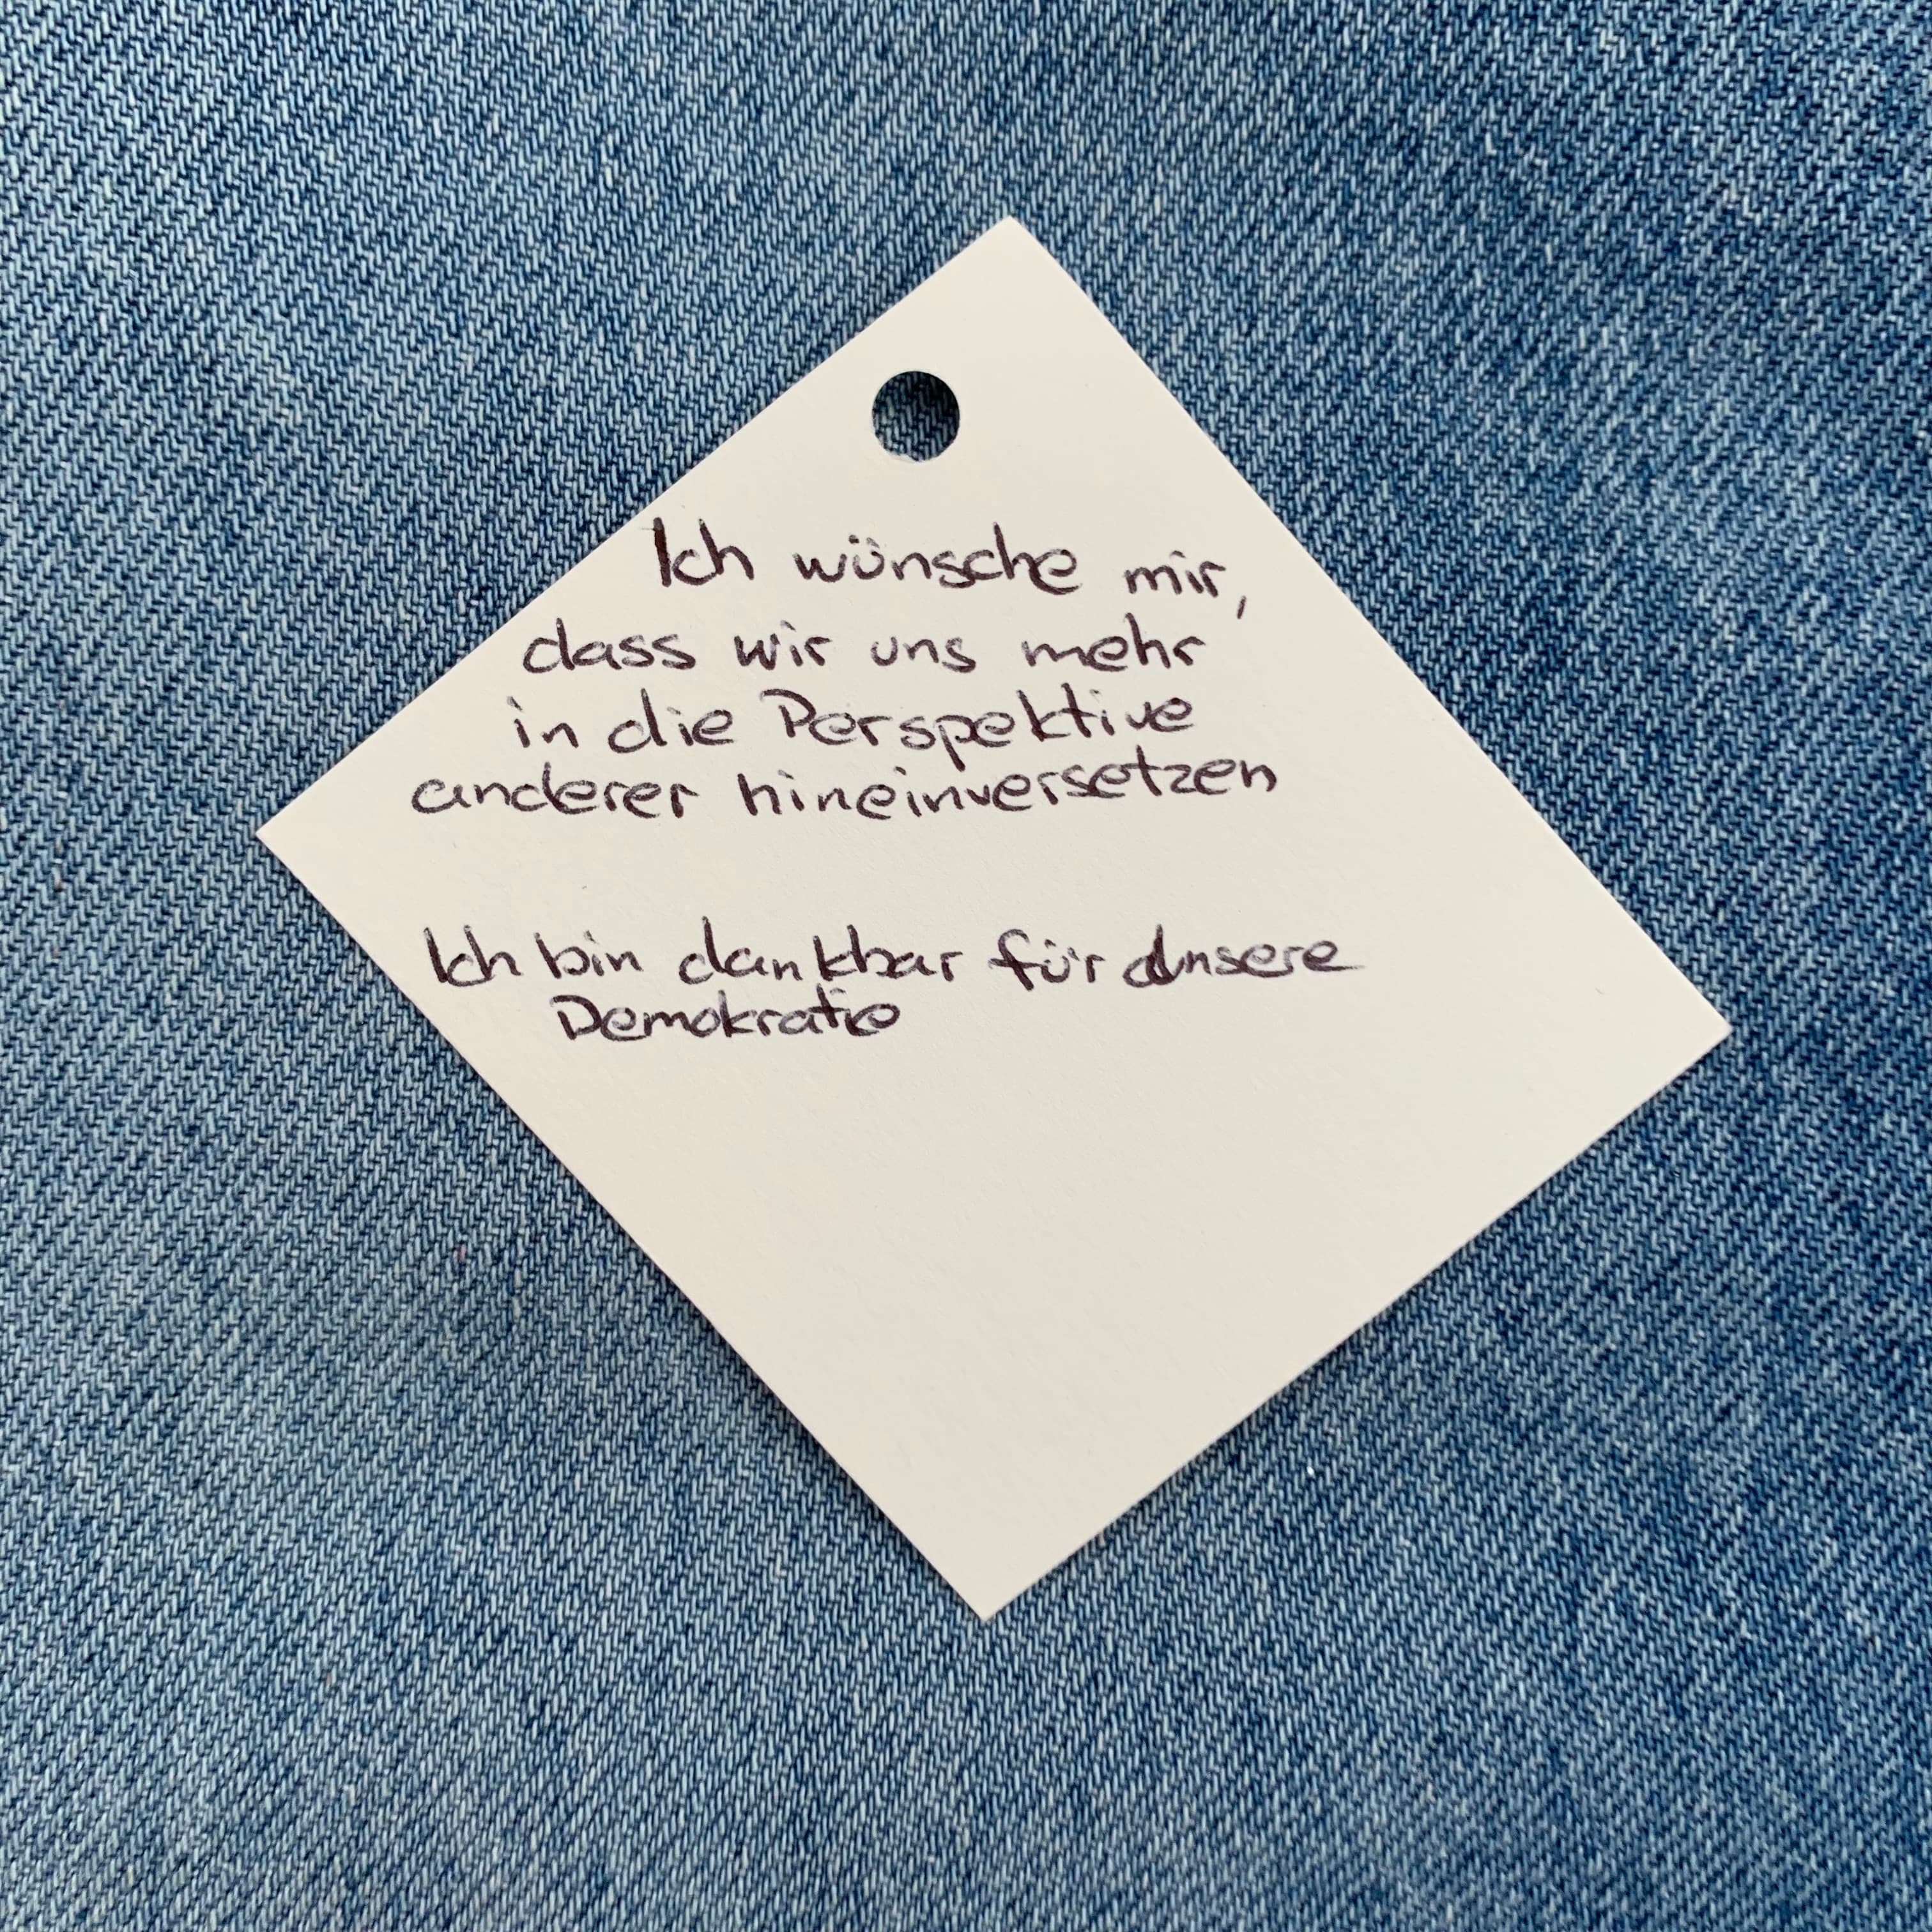 Ich wünsche mir,
dass wir uns mehr
in die Perspektive
anderer hineinversetzen
Ich bin dankbar für unsere
Demokratie